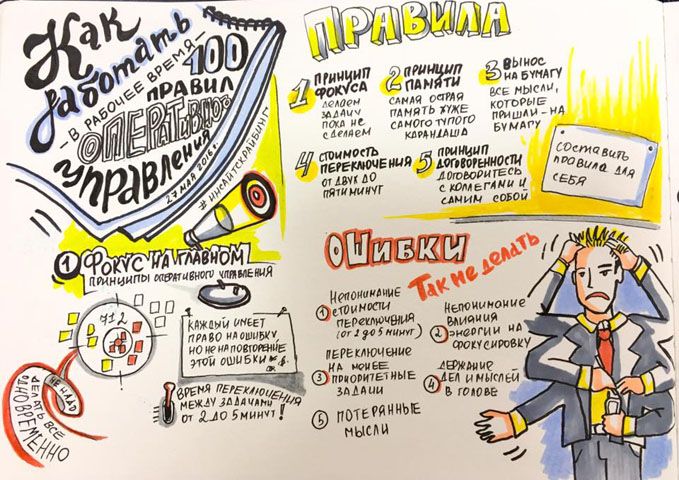 Как
работать
- В РАБОЧЕЕ ВРЕМЯ -
100
ПРАВИЛ
ОПЕРАТИВНОГО
управления
27 МАЯ 2016 г.
#ИНСАЙТСКРАЙБИНГ
1 ФОКУС НА ГЛАВНОМ
ПРИНЦИПЫ ОПЕРАТИВНОГО УПРАВЛЕНИЯ
7±2
НЕ НАДО
ДЕЛАТЬ ВСЕ
ОДНОВРЕМЕННО
КАЖДЫЙ ИМЕЕТ
ПРАВО НА ОШИБКУ,
НО НЕ НА ПОВТОРЕНИЕ
ЭТОЙ ОШИБКИ
ВРЕМЯ ПЕРЕКЛЮЧЕНИЯ
МЕЖДУ ЗАДАЧАМИ
ОТ 2 ДО 5 МИНУТ!
ПРАВИЛА
1 ПРИНЦИП
ФОКУСА
ДЕЛАЕМ
ЗАДАЧУ
ПОКА НЕ
СДЕЛАЕМ
2 ПРИНЦИП
ПАМЯТИ
САМАЯ ОСТРАЯ
ПАМЯТЬ ХУЖЕ
САМОГО ТУПОГО
КАРАНДАША
3 ВЫНОС
НА БУМАГУ
ВСЕ МЫСЛИ,
КОТОРЫЕ
ПРИШЛИ - НА
БУМАГУ
4 СТОИМОСТЬ
ПЕРЕКЛЮЧЕНИЯ
ОТ ДВУХ ДО
ПЯТИ МИНУТ
5 ПРИНЦИП
ДОГОВОРЕННОСТИ
ДОГОВОРИТЕСЬ
С КОЛЛЕГАМИ И
САМИМ СОБОЙ
СОСТАВИТЬ
ПРАВИЛА ДЛЯ
СЕБЯ
ОШИБКИ
Так не делать
1 НЕПОНИМАНИЕ
СТОИМОСТИ
ПЕРЕКЛЮЧЕНИЯ
(ОТ 2 ДО 5 МИНУТ)
2 НЕПОНИМАНИЕ
ВЛИЯНИЯ
ЭНЕРГИИ НА
ФОКУСИРОВКУ
3 ПЕРЕКЛЮЧЕНИЕ
НА МЕНЕЕ
ПРИОРИТЕТНЫЕ
ЗАДАЧИ
4 ДЕРЖАНИЕ
ДЕЛ И МЫСЛЕЙ
В ГОЛОВЕ
5 ПОТЕРЯННЫЕ
МЫСЛИ